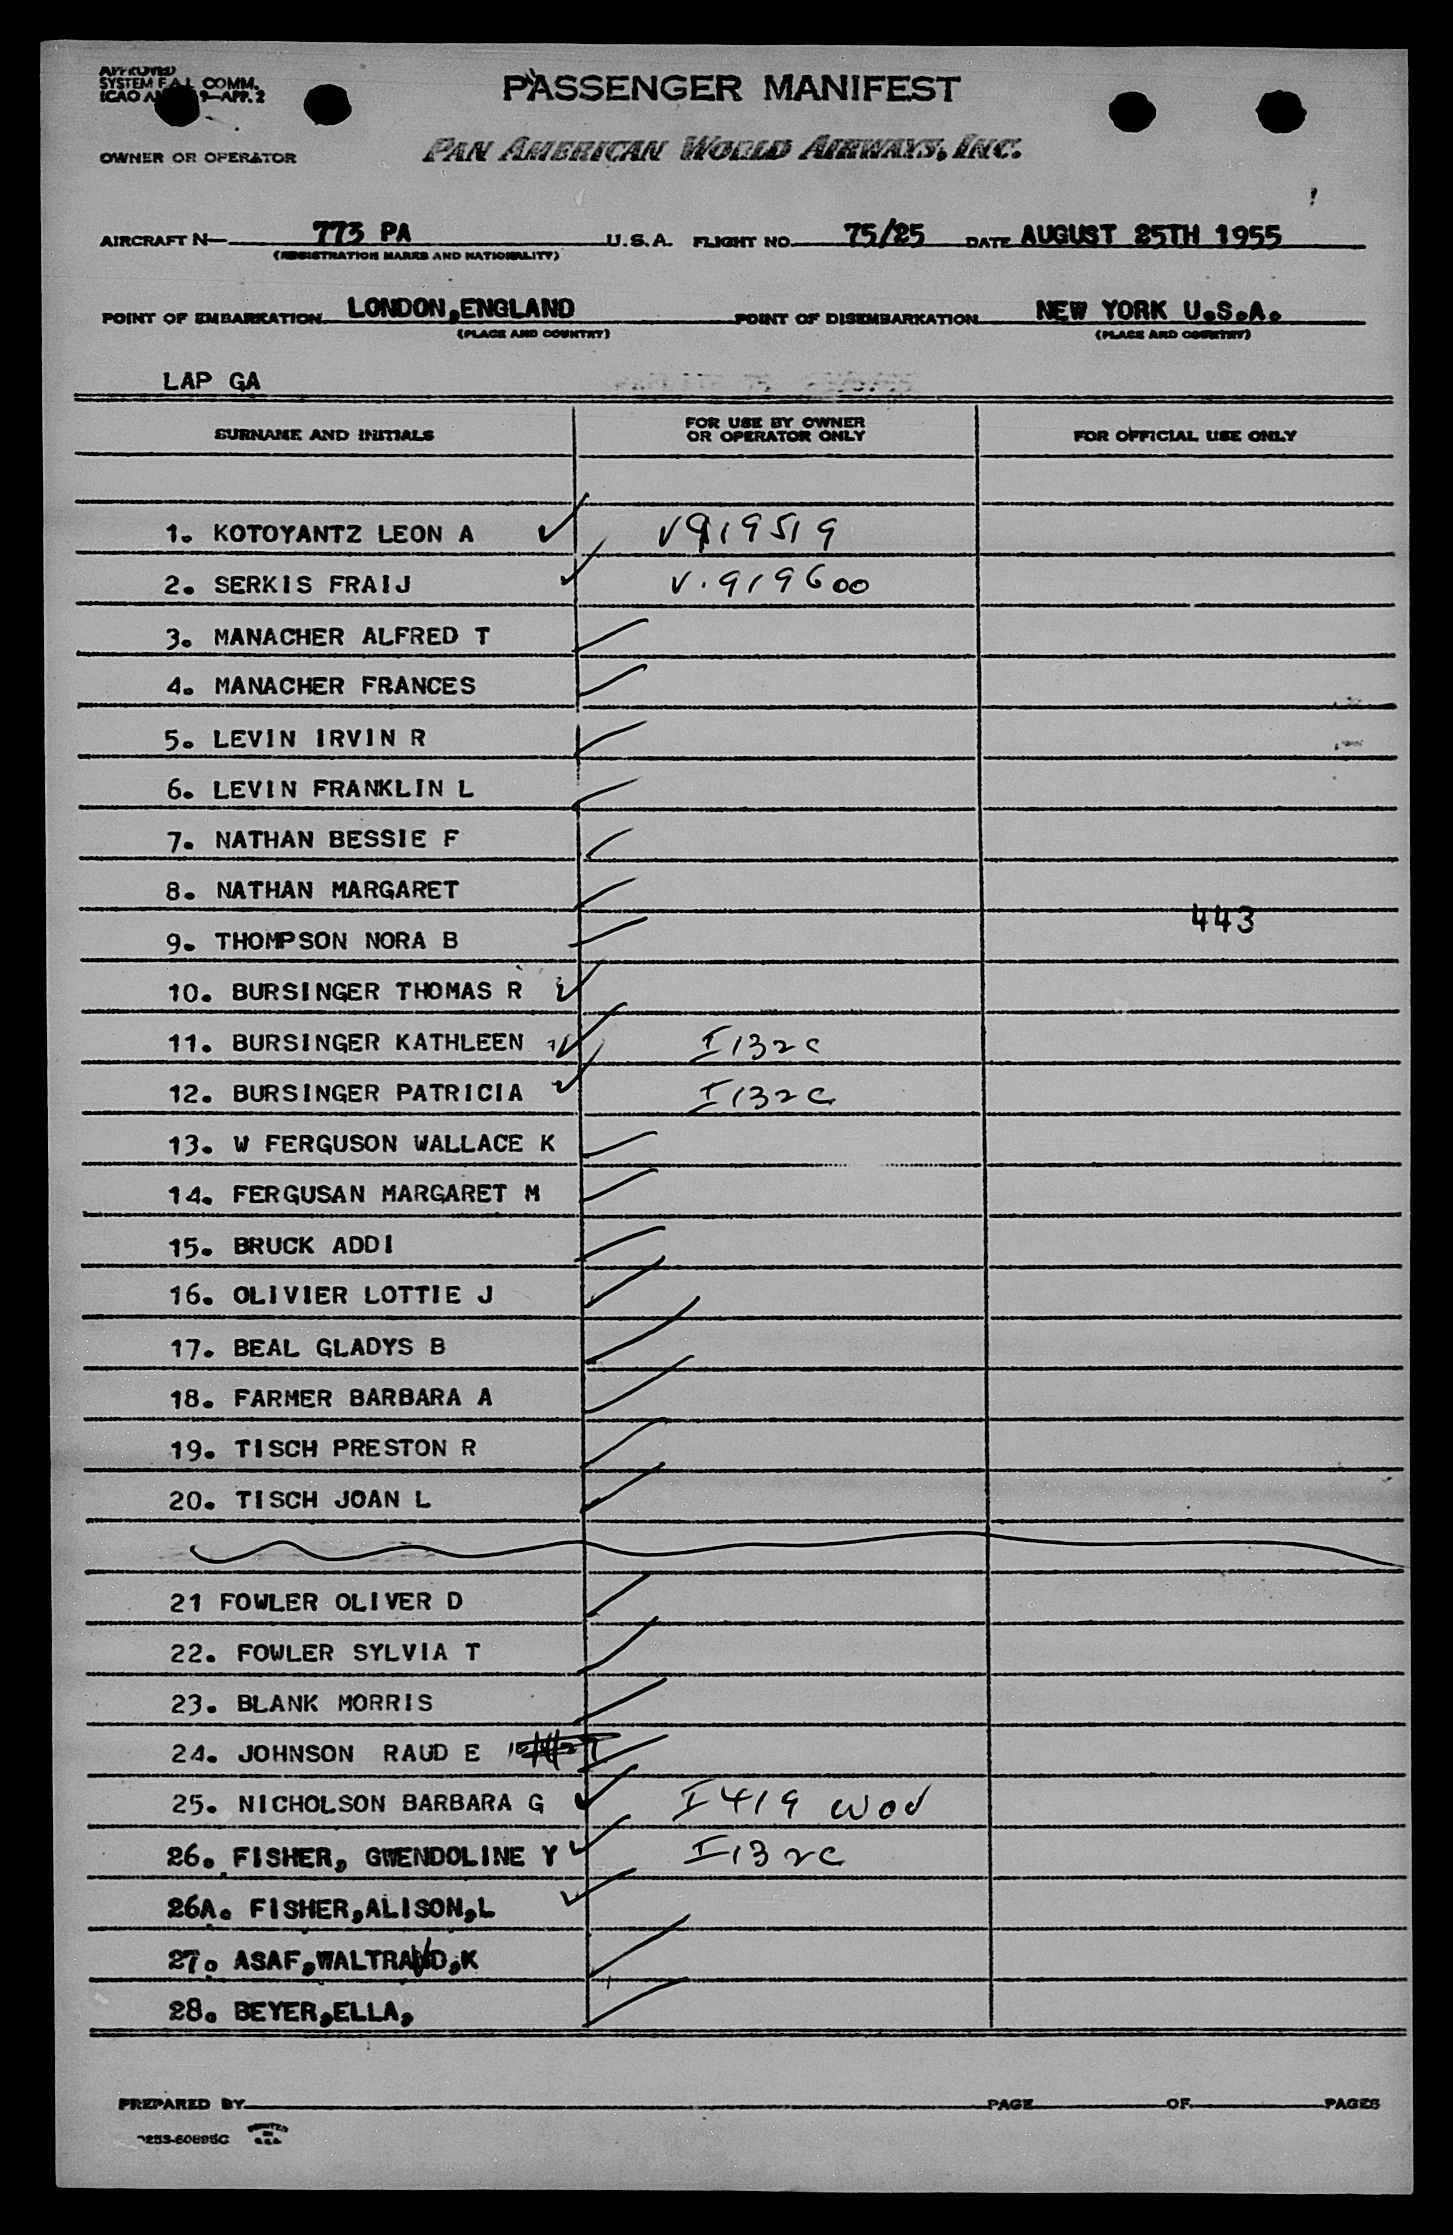 APPROVED
SYSTEM F.A.L. COMM.
ICAO 9—APP. 2
PASSENGER MANIFEST
OWNER OR OPERATOR PAN AMERICAN WORLD AIRWAYS, INC.
AIRCRAFT N— 773 PA U.S.A. FLIGHT NO. 75/25 DATE AUGUST 25TH 1955
(REGISTRATION MARKS AND NATIONALITY)
POINT OF EMBARKATION LONDON,ENGLAND POINT OF DISEMBARKATION NEW YORK U.S.A.
(PLACE AND COUNTRY) (PLACE AND COUNTRY)
LAP GA
SURNAME AND INITIALS FOR USE BY OWNER OR OPERATOR ONLY FOR OFFICIAL USE ONLY
1. KOTOYANTZ LEON A V919519
2. SERKIS FRAIJ V.919600
3. MANACHER ALFRED T
4. MANACHER FRANCES
5. LEVIN IRVIN R
6. LEVIN FRANKLIN L
7. NATHAN BESSIE F
8. NATHAN MARGARET
443
9. THOMPSON NORA B
10. BURSINGER THOMAS R
11. BURSINGER KATHLEEN I132C
12. BURSINGER PATRICIA I132C
13. W FERGUSON WALLACE K
14. FERGUSAN MARGARET M
15. BRUCK ADDI
16. OLIVIER LOTTIE J
17. BEAL GLADYS B
18. FARMER BARBARA A
19. TISCH PRESTON R
20. TISCH JOAN L
21 FOWLER OLIVER D
22. FOWLER SYLVIA T
23. BLANK MORRIS
24. JOHNSON RAUD E
25. NICHOLSON BARBARA G I419 WOV
26. FISHER, GWENDOLINE Y I132C
26A. FISHER,ALISON,L
27. ASAF,WALTRAUD,K
28. BEYER,ELLA,
PREPARED BY PAGE OF PAGES
PRINTED IN U.S.A.